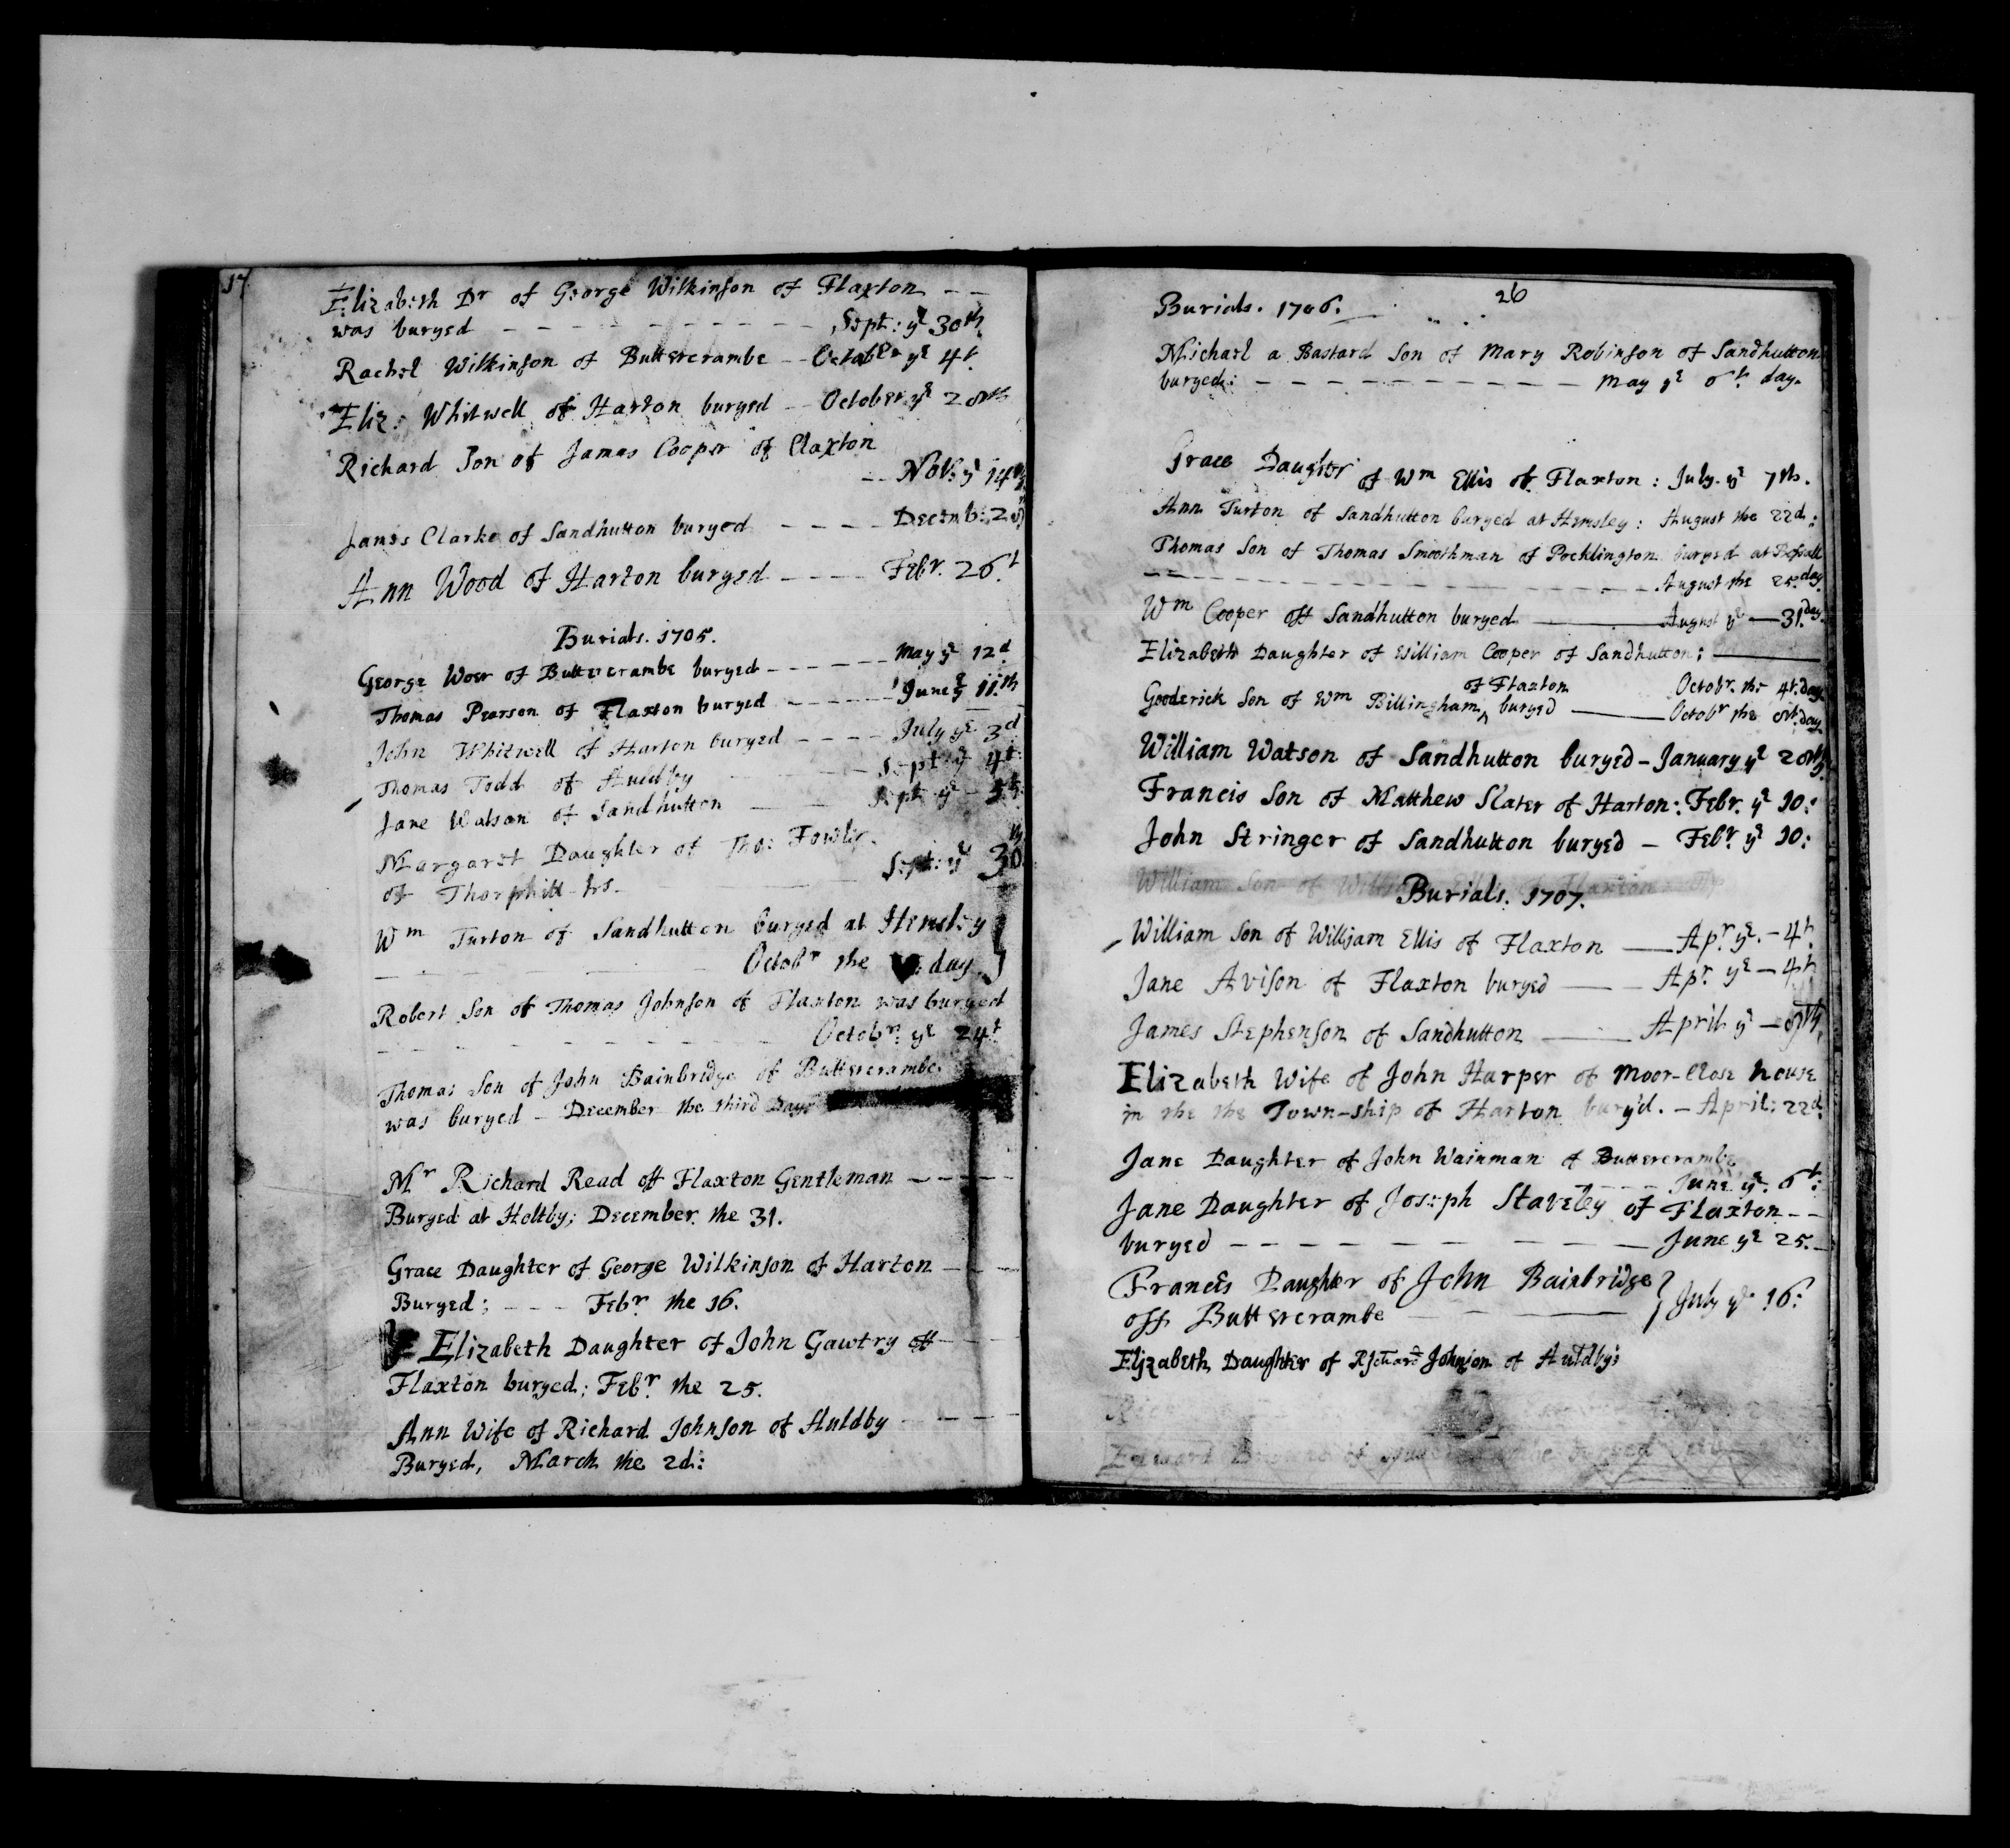 17
Elizabeth Dr of George Wilkinson of Flaxton
was buryed Sept: ye 30th.
Rachel Wilkinson of Buttercrambe Octobr ye 4t.
Eliz: Whitwell of Harton buryed October ye
Richard Son of James Cooper of Claxton
Nov: ye 14th
James Clarke of Sandhutton buryed Decemb:
Ann Wood of Harton buryed Febr. 26t
Burials. 1705.
George Woer of Buttercrambe buryed May ye 12d
Thomas Pearson of Flaxton buryed June ye 11th
John Whitwell of Harton buryed July ye 3d
Thomas Todd of Auldby Sept: ye 4t
Jane Watson of Sandhutton Sept: ye
Margaret Daughter of Tho: Fowler
of Thorphill Sept: ye 30th
Wm Turton of Sandhutton buryed at Hemsley
Octobr the day.
Robert Son of Thomas Johnson of Flaxton was buryed
Octobr: ye 24t
Thomas Son of John Bainbridge of Buttercrambe
was buryed - December the third Day
Mr Richard Read off Flaxton Gentleman
Buryed at Holtby; December. the 31.
Grace Daughter of George Wilkinson of Harton
Buryed; Febr. the 16.
Elizabeth Daughter of John Gawtry off
Flaxton buryed; Febr. the 25.
Ann Wife of Richard Johnson of Auldby
Buryed, March the 2d:
26
Burials. 1706.
Michael a Bastard Son of Mary Robinson of Sandhutton
buryed: May ye 6t. day.
Grace Daughter of Wm Ellis of Flaxton: July. ye 7th.
Ann Turton of Sandhutton buryed at Hemsley: August the 22d:
Thomas Son of Thomas Smoothman of Pocklington buryed at Bossall
August the 25. day
Wm Cooper off Sandhutton buryed August ye 31. day.
Elizabeth Daughter of William Cooper of Sandhutton;
of Flaxton Octobr. the 4t. day
Gooderick Son of Wm Billingham ^ buryed Octobr the day
William Watson of Sandhutton buryed - January ye
Francis Son of Matthew Slater of Harton: Febr. ye 10:
John Stringer of Sandhutton buryed - Febr. ye 10:
William Son of
Burials. 1707.
William Son of William Ellis of Flaxton Apr. ye. - 4t.
Jane Avison of Flaxton buryed Apr. ye - 4t
James Stephenson of Sandhutton April ye
Elizabeth Wife of John Harper of Moor-Close house
in the the Town-ship of Harton bury'd. - April: 22d:
Jane Daughter of John Wainman of Buttercrambe
June ye. 6t:
Jane Daughter of Joseph Staveley of Flaxton
buryed June ye 25.
Francis Daughter of John Bainbridge
off Buttercrambe July ye 16:
Elizabeth Daughter of Richard Johnson of Auldby: